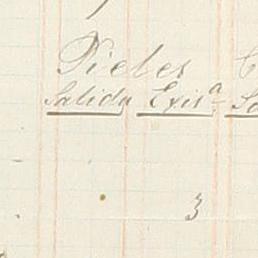 Pieles
Salida Exisª
3